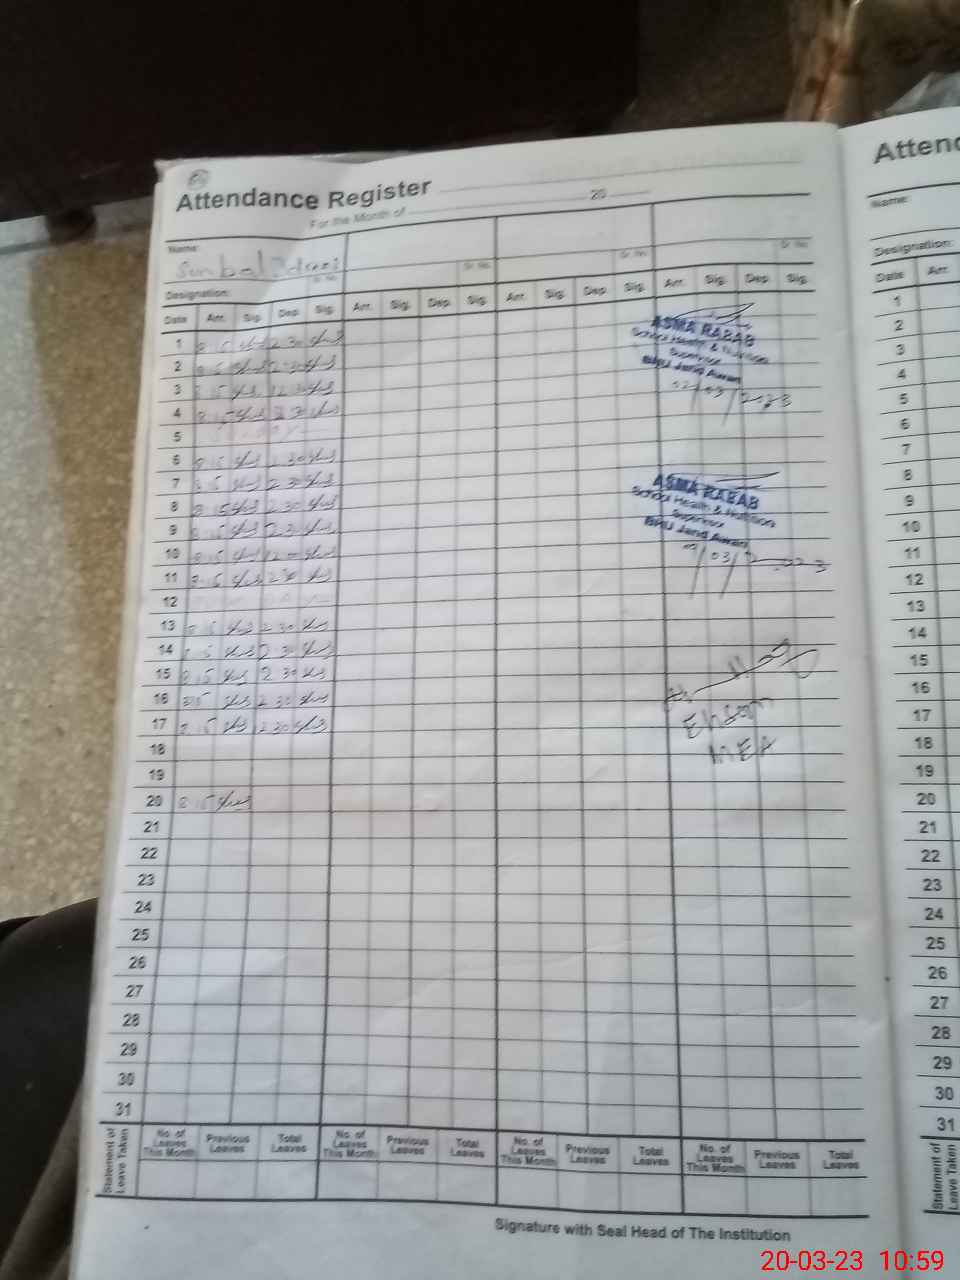 Attendance Register
For the Month of 20
Name:
Sunbal
Sr. No. Sr. No. Sr. No. Sr. No.
Designation:
Date Arr. Sig. Dep. Sig. Arr. Sig. Dep. Sig. Arr. Sig. Dep. Sig. Arr. Sig. Dep. Sig.
1 8 15 2 30
2 8 15 2 30
3 8 15 12 30
4 8 15 2 30
5
6 8 15 2 30
7 8 15 2 30
8 8 15 2 30
9 8 15 2 30
10 8 15 12 00
11 8 15 2 30
12
13 8 15 2 30
14 8 15 2 30
15 8 15 2 30
16 8 15 2 30
17 8 15 2 30
18
19
20 8 15
21
22
23
24
25
26
27
28
29
30
31
ASMA RABAB
School Health & Nutrition
Supervisor
BHU Jand Awan
02/03/2023
ASMA RABAB
School Health & Nutrition
Supervisor
BHU Jand Awan
/03/2023
Ehsan
MEA
Statement of Leave Taken
No. of Leaves This Month Previous Leaves Total Leaves No. of Leaves This Month Previous Leaves Total Leaves No. of Leaves This Month Previous Leaves Total Leaves No. of Leaves This Month Previous Leaves Total Leaves
Signature with Seal Head of The Institution
Atten
Name:
Designation:
Date Arr.
1
2
3
4
5
6
7
8
9
10
11
12
13
14
15
16
17
18
19
20
21
22
23
24
25
26
27
28
29
30
31
Statement of Leave Taken
20-03-23 10:59